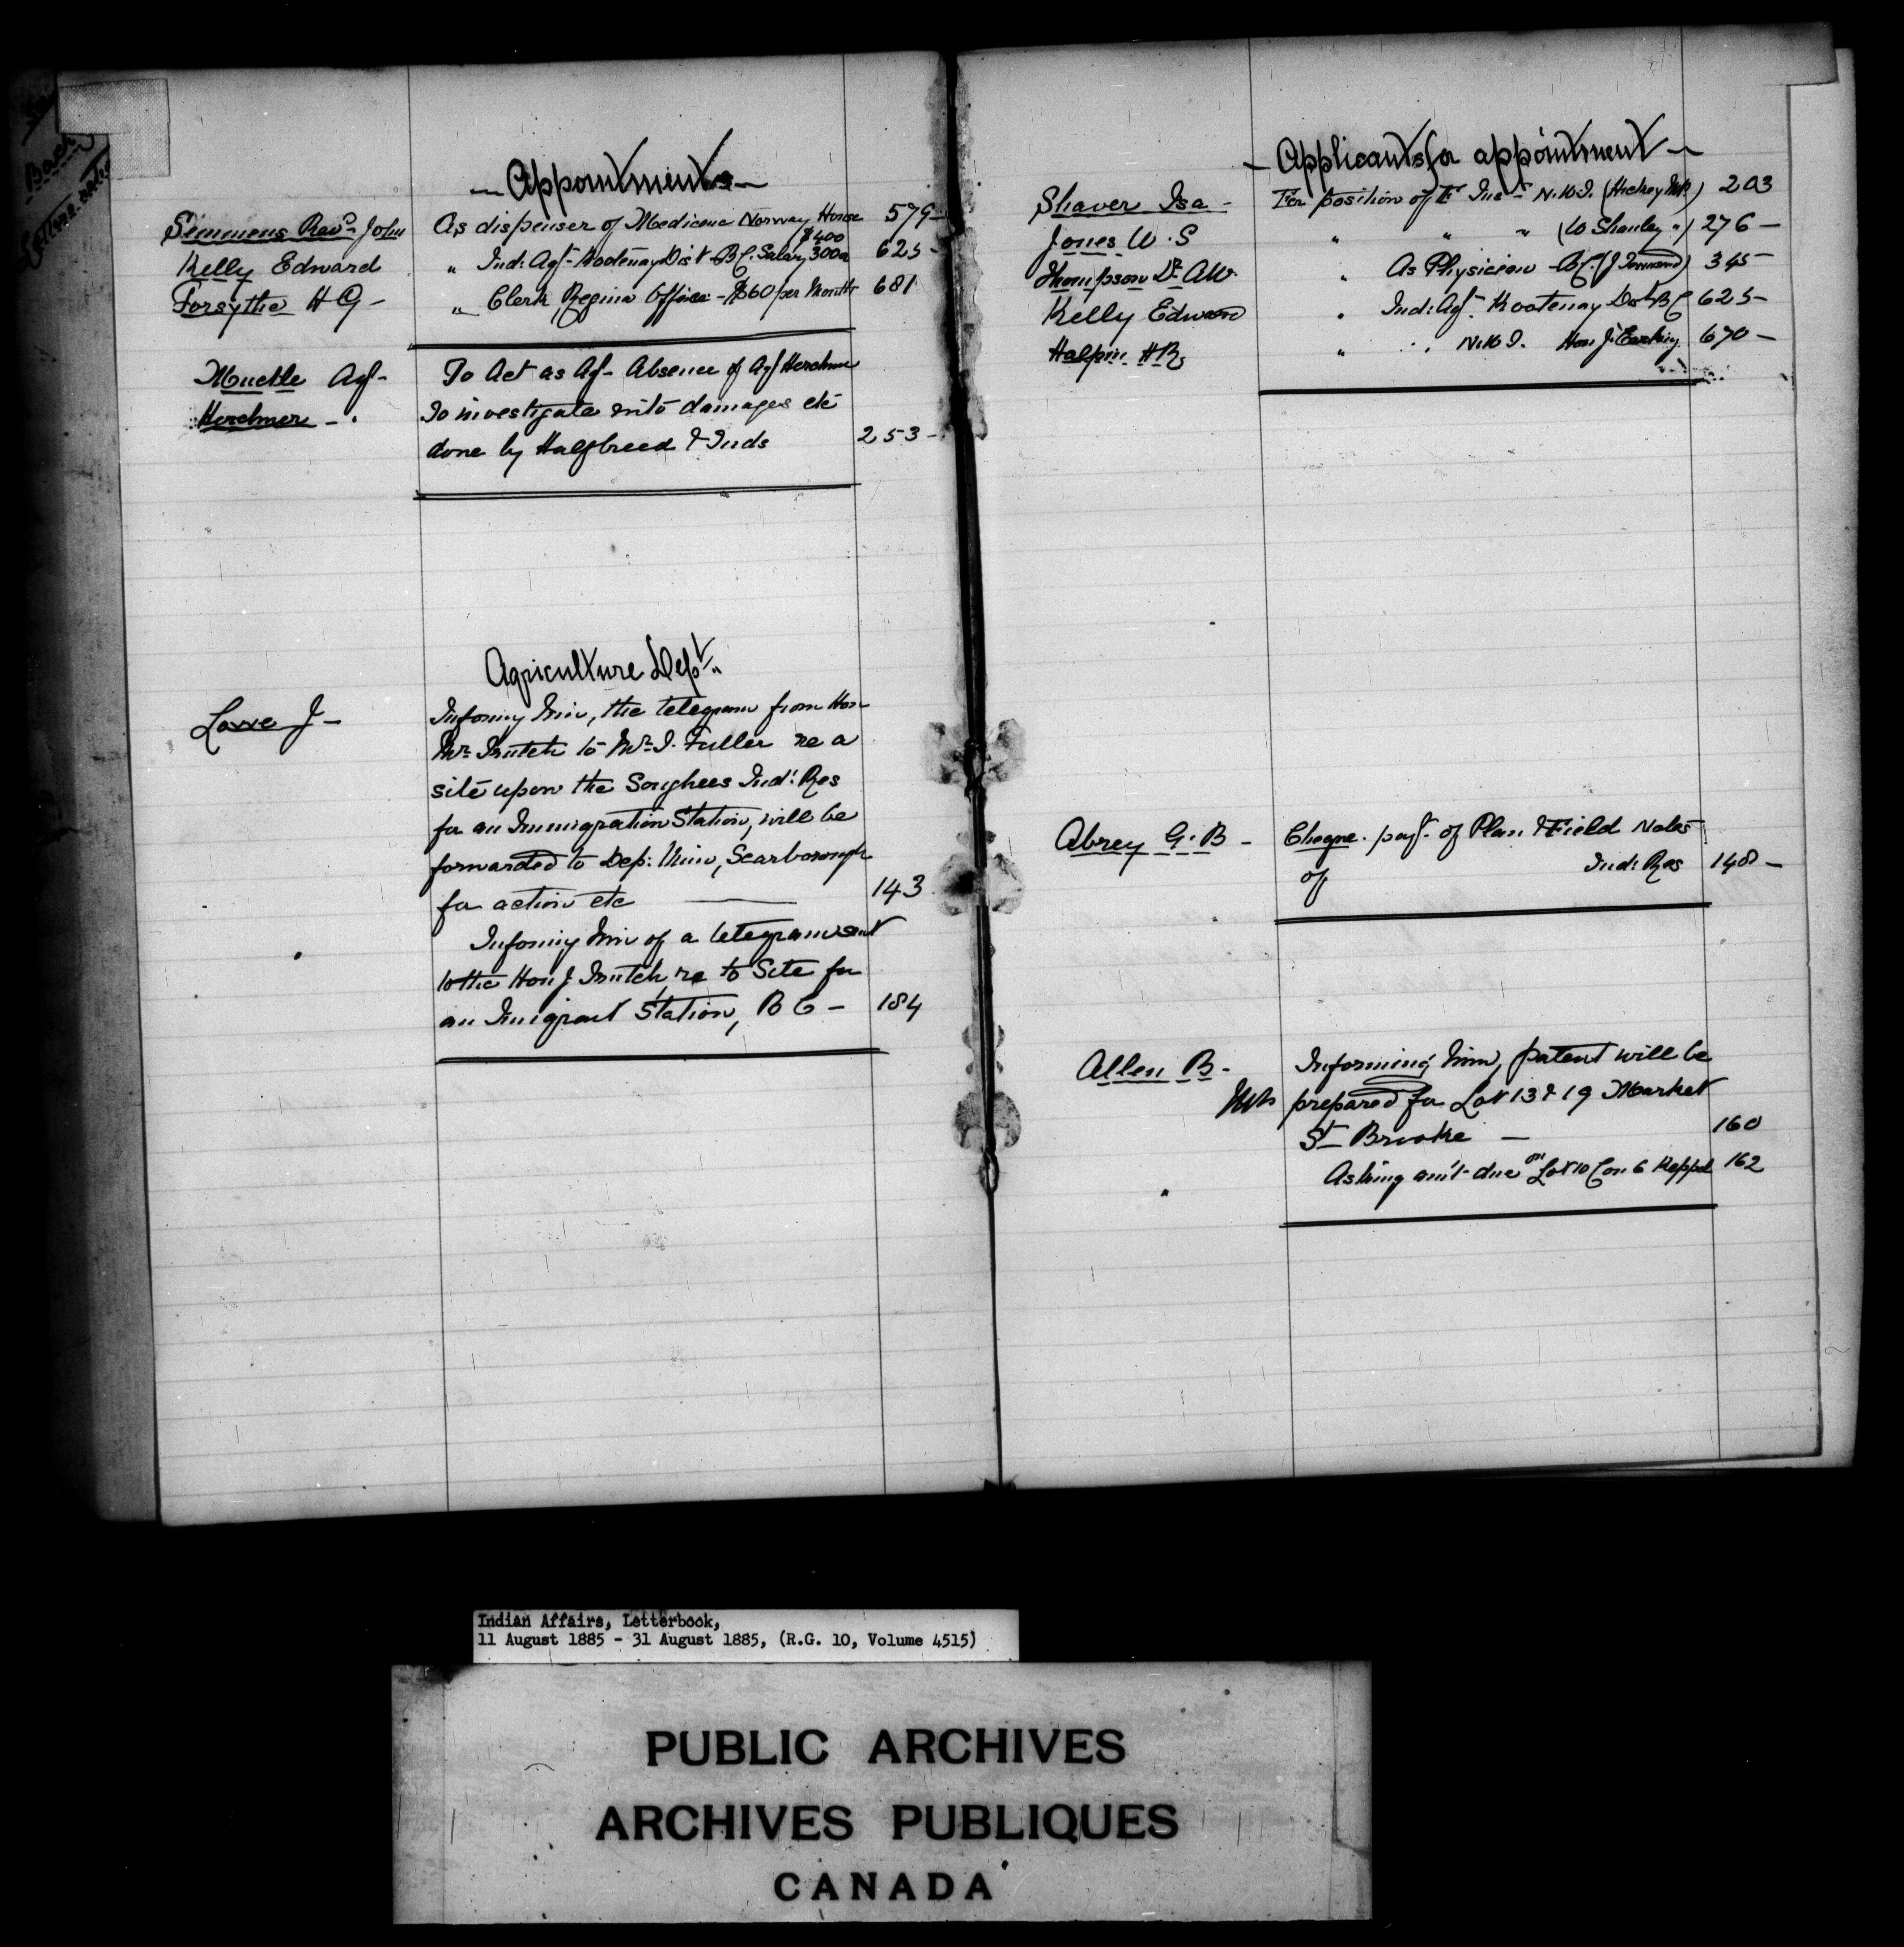 — Appointments —
Semmens Revd John As dispenser of Medicine Norway House 579 —
$400
Kelly Edward " Ind: Agt - Kootenay Dist B.C. Salary 3000 625 —
Forsythe H G — " Clerk, Regina Office — $60 per Month 681
Muckle Agt — To Act as Agt - Absence of Agt Herchmer
Herchmer — " To investigate into damages etc
done by Halfbreed & Inds 253 —
Agriculture Dept.
Lowe J — Informg him, the telegram from Hon
Mr. Trutch to Mr. I. Fuller re a
site upon the Songhees Ind: Res
for an Immigration Station, will be
forwarded to Dep: Min, Scarborough
for action etc — 143
" Informg him of a telegram sent
to the Hon J Trutch, re to Site for
an Imigrant Station, B C — 184
— Applicants for appointment —
Shaver Isa — For position of F Insr N.W.T. (Hickey MP) 203
Jones W. S " " " (W Shanley ") 276 —
Thompson Dr. A W. " As Physician - B.C. (J Townsend) 345 —
Kelly Edward " Ind: Agt. Kootenay Dist B C 625 —
Halpin H R " " N.W.T. Hon J. Carling 670 —
Abrey G. B — Cheque. payt. of Plan & Field Notes
of Ind: Res 148 —
Allen B. — Informing him, patent will be
prepared for Lot 13 & 19 Market
St Brooke — 160
" Asking am't due on Lot 10 Con 6 Keppel 162
Indian Affairs, Letterbook,
11 August 1885 - 31 August 1885, (R.G. 10, Volume 4515)
PUBLIC ARCHIVES
ARCHIVES PUBLIQUES
CANADA